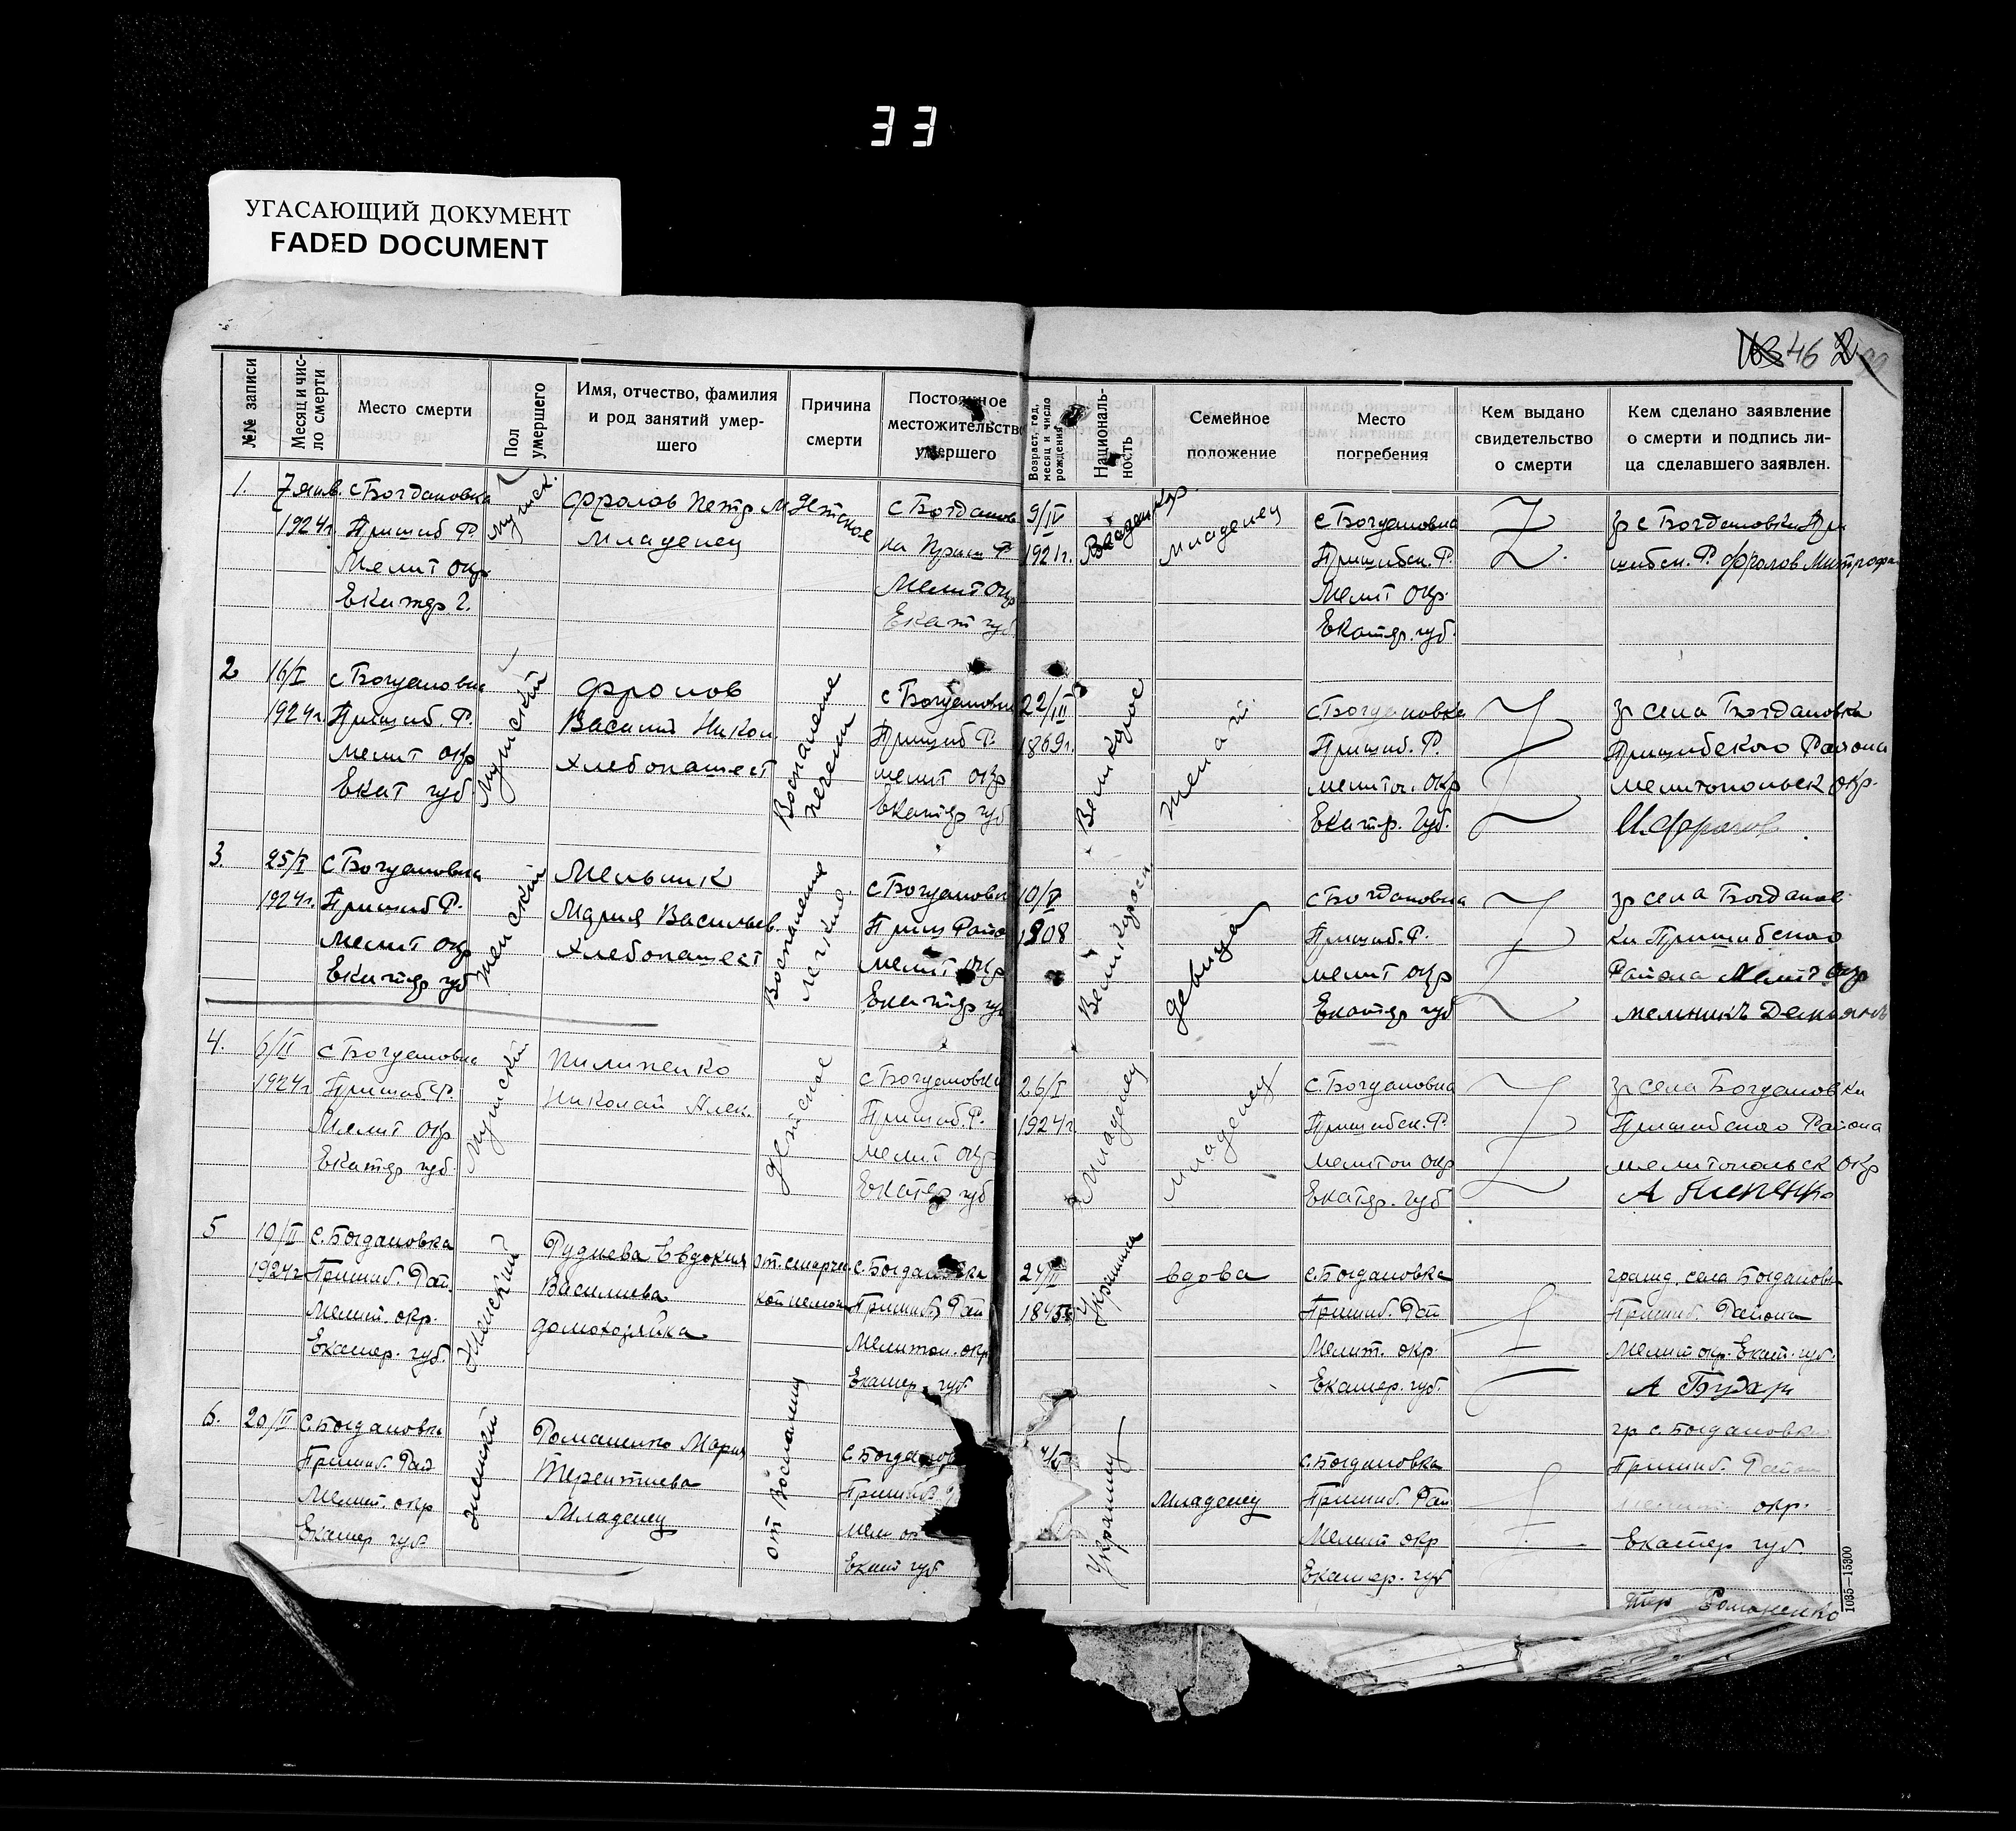 33
УГАСАЮЩИЙ ДОКУМЕНТ
FADED DOCUMENT
46
№№ записи
Месяц и чис-
ло смерти
Место смерти
Пол
умершего
Имя, отчество, фамилия
и род занятий умер-
шего
Причина
смерти
Постоянное
местожительство
умершего
Возраст, год,
месяц и число
рождения
Националь-
ность
Семейное
положение
Место
погребения
Кем выдано
свидетельство
о смерти
Кем сделано заявление
о смерти и подпись ли-
ца сделавшего заявлен.
1.
7 янв.
1924г
с Богдановка
Пришиб Р.
Мелит окр
Екатер г.
мужск.
Фролов Петр М
Младенец
Детское
с Богданов
ка Приш Р.
Мелит окр
Екат губ.
9/IV
1921г.
Младенец
с Богдановка
Пришибск. Р.
Мелит окр.
Екатер. губ.
гр с Богдановки При
шибск. Р. Фролов Митрофан
2
16/I
1924г.
с Богдановка
Пришиб. Р.
Мелит окр
Екат губ
Мужский
Фролов
Василий Никол
Хлебопашест
Воспаление
печени
с Богдановки
Пришиб Р.
мелит окр
Екатер губ
22/III
1869г.
Великорос
женат.
с Богдановка
Пришиб. Р.
мелитоп. окр
Екатер. Губ.
гр села Богдановка
Пришибского Района
мелитопольск окр.
И. Фролов
3.
25/I
1924г.
с Богдановка
Пришиб Р.
Мелит окр
Екатер губ
Женский
Мельник
Мария Васильев.
Хлебопашест
Воспаления
легкие.
с Богдановки
Приш Райо
мелит окр
Екатер губ
10/V
1908
Великоросс
девица
с Богдановка
Пришиб. Р.
мелит окр
Екатер губ
гр села Богданов
ки Пришибского
Района Мелит окр
мелникъ Демьянъ
4.
6/II
1924г
с Богдановка
Пришиб Р.
Мелит окр
Екатер губ.
Мужский
Пилипенко
Николай Алек.
Детское
с Богдановки
Пришиб. Р.
мелит окр
Екатер губ
26/I
1924г.
Младенец
младенец
с Богдановка
Пришибск. Р.
мелитоп окр
Екатер. губ
гр села Богдановки
Пришибского Района
мелитопольск окр
5
10/II
1924г
с. Богдановка
Пришиб. Рай.
Мелит. окр.
Екатер. губ.
Женский
Руднева Евдокия
Василиева
домохозяйка
от. старчес
кой немощ
с. Богдановка
Пришиб. Рай
Мелитоп. окр.
Екатер. губ.
Украинка
вдова
с. Богдановка
Пришиб. Рай
Мелит. окр.
Екатер. губ.
гражд. села Богдановки
Пришиб. Района
Мелит окр. Екат. губ.
6.
20/II
с. Богдановка
Пришиб. Рай
Мелит. окр
Екатер губ
Женский
Романенко Мария
Терентиева
Младенец
от Воспаления
с. Богданов
Пришиб
Мел окр
Екат губ
Младенец
с. Богдановка
Пришиб. Рай
Мелит окр
Екатер. губ
гр с. Богдановки
Пришиб. Район
окр.
Екатер губ.
Тер Романенко
1035—15300